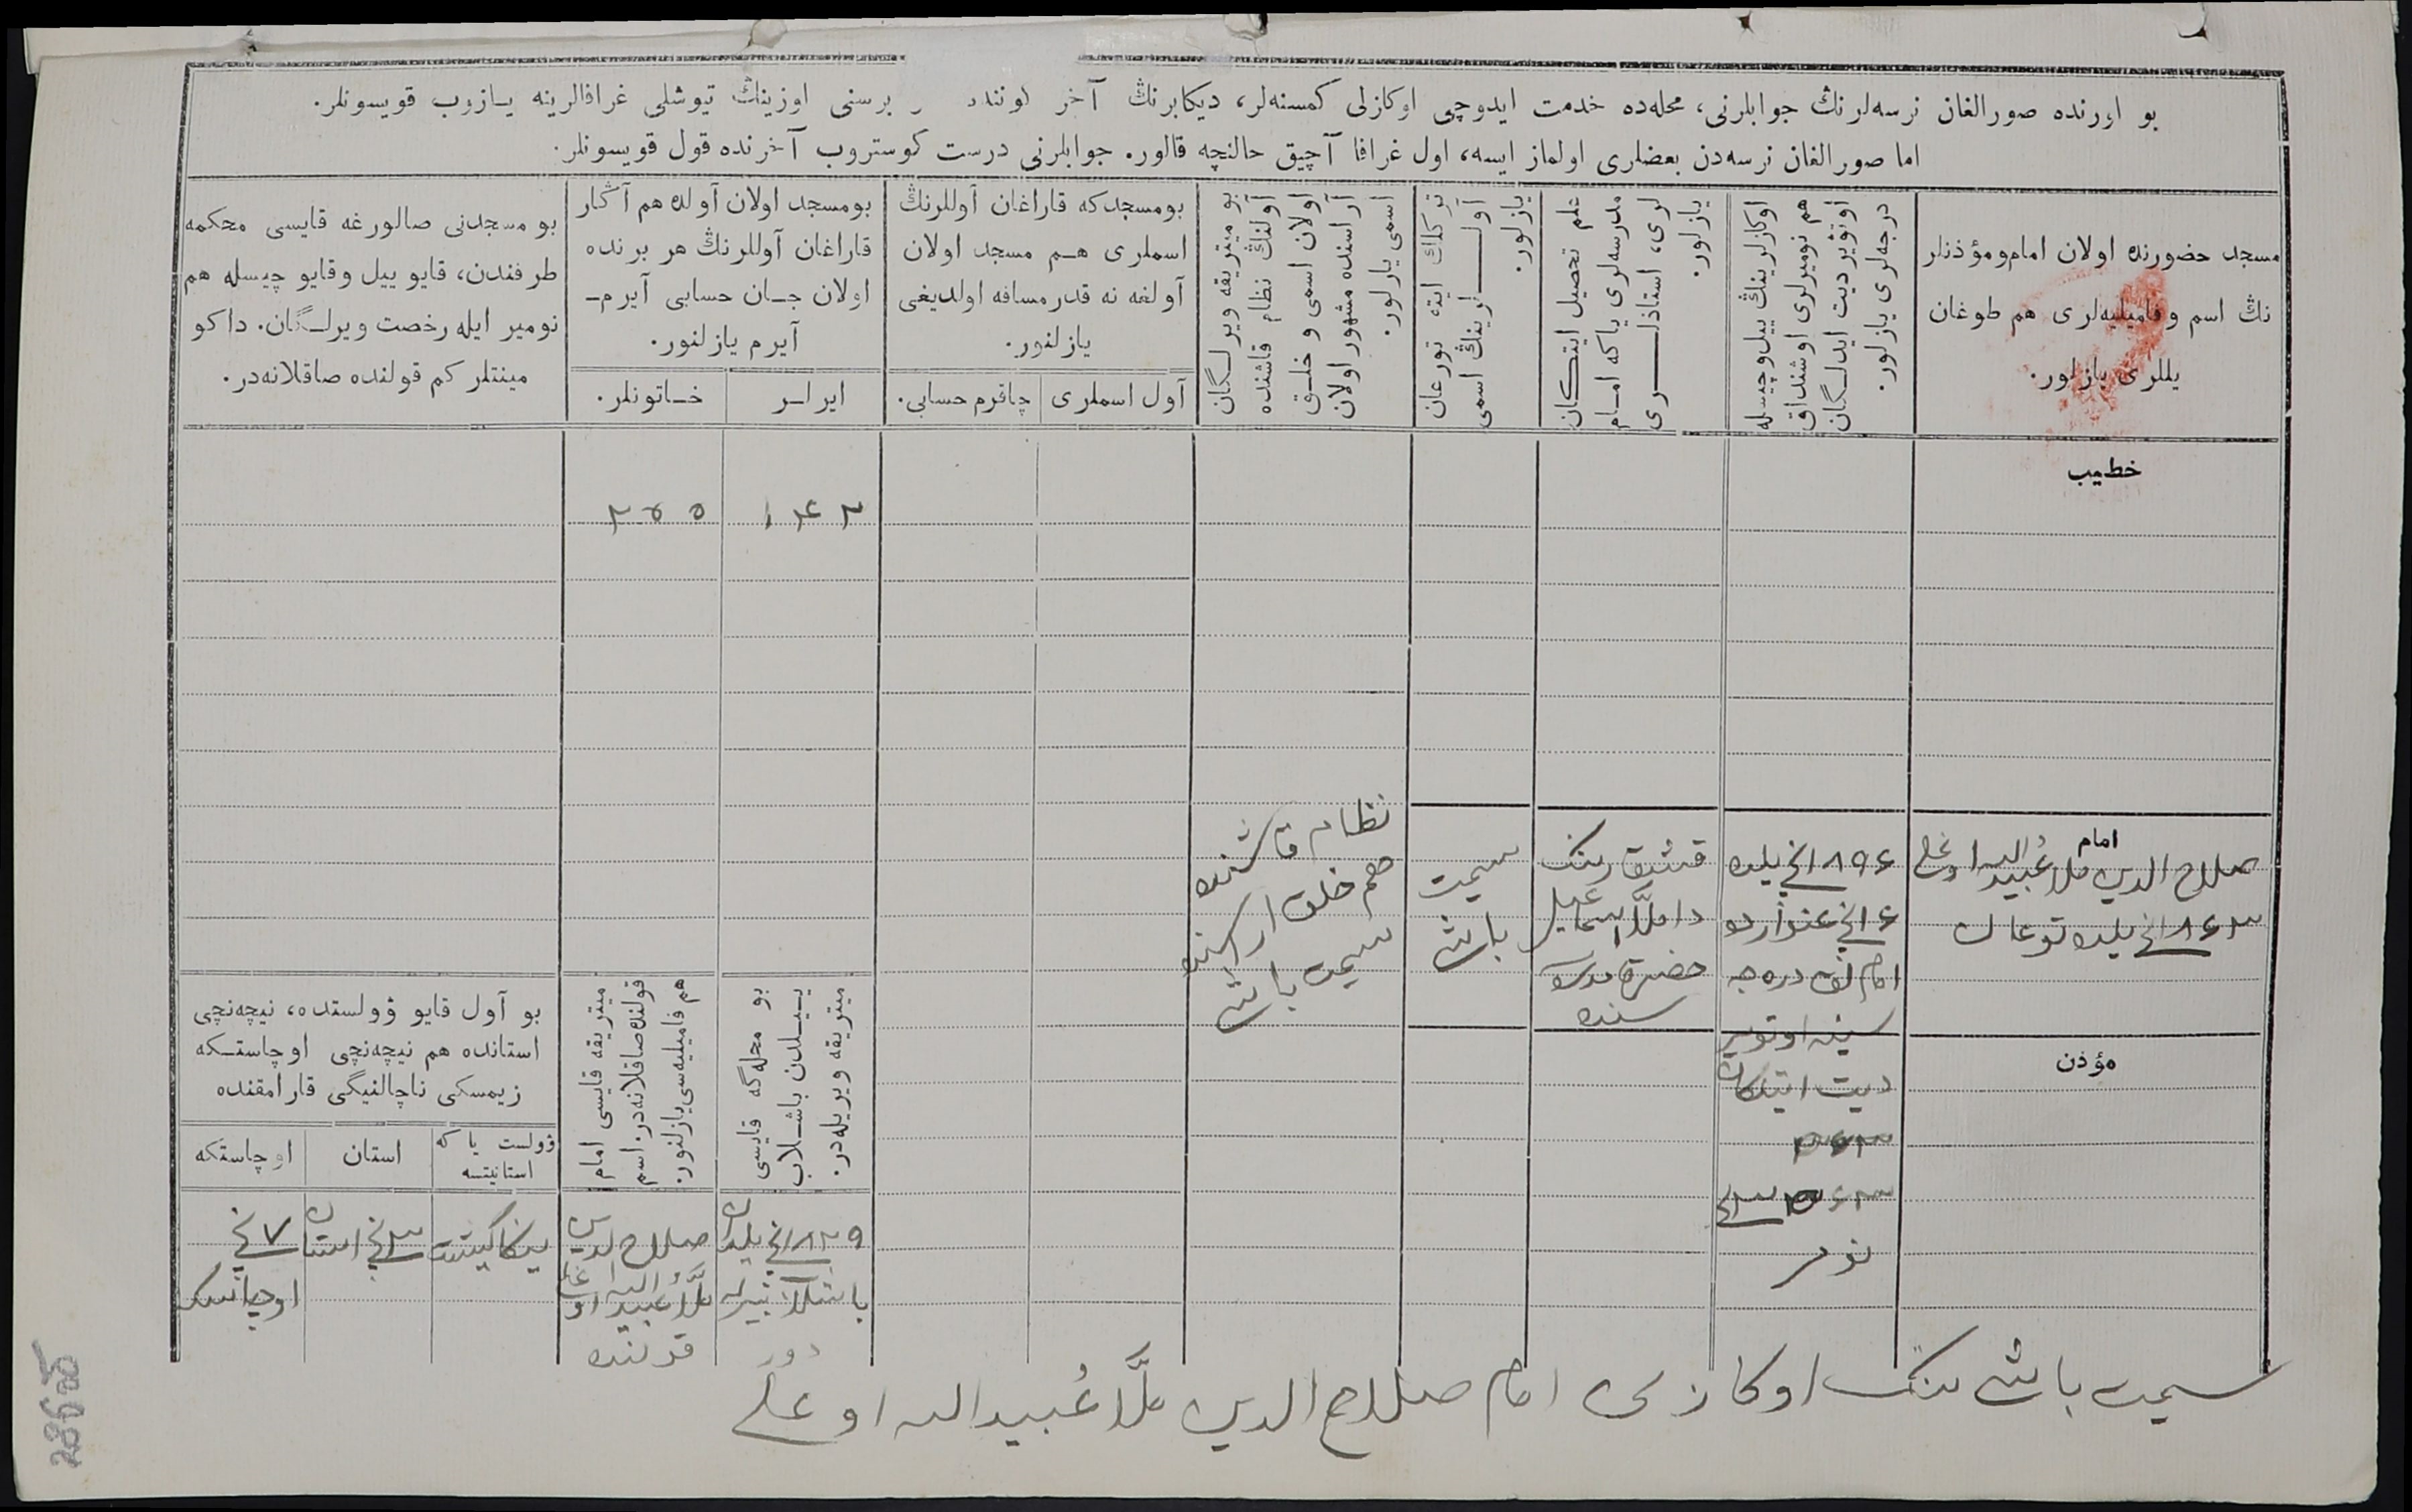 بو اورنده صورالغان نرسه‌لرنڭ جوابلرنی، محله‌ده خدمت ایدوچی اوکازلی کمسنه‌لر، دیکابرنڭ آخر برسنی اوزینڭ تیوشلی غرافالرینه یازوب قویسونلر.
اما صورالغان نرسه‌دن بعضلری اولماز ایسه، اول غرافا آچیق حالنچه قالور. جوابلرنی درست کوستروب آخرنده قول قویسونلر.
مسجد حضورنده اولان امام و مؤذنلر
نڭ اسم و فامیلیه‌لری هم طوغان
یللری یازلور.
اوکازلرینڭ ییل و چیسله
هم نومیرلری اوشنداق
اوتویردیت ایدلگان
درجه‌لری یازلور.
علم تحصیل ایتکان
مدرسه‌لری یاکه امام
لری، استاذلری
یازلور.
ترکلك ایته تورغان
آوللرینڭ اسمی
یازلور.
بو میتریقه ویرلگان
آولنڭ نظام قاشنده
اولان اسمی و خلق
آراسنده مشهور اولان
اسمی یازلور.
بومسجدکه قاراغان آوللرنڭ
اسملری هم مسجد اولان
آولغه نه قدر مسافه اولدیغی
یازلنور.
آول اسملری
چاقرم حسابی.
بومسجد اولان آولده هم آڭار
قاراغان آوللرنڭ هر برنده
اولان جان حسابی آیرم-
آیرم یازلنور.
ایرلر
خاتونلر.
بو مسجدنی صالورغه قایسی محکمه
طرفندن، قایو ییل وقایو چیسله هم
نومیر ایله رخصت ویرلگان. داکو
مینتلر کم قولنده صاقلانه‌در.
خطیب
امام
صلاح الدین ملا عُبید الله اوغلی
۱۸۶۳ انچی یلده توغان
۱۸۹۶ انچی یلده
امام لق درجه
سینه اوتویر
دیت ایتلکان
نومر
حضرت مدرسه
سنده
سیمت
باش
نظام قاشنده
هم خلق اراسنده
سیمت باش
مؤذن
بو محله‌گه قایسی
ییلدن باشلاب
میتریقه ویریله‌در.
میتریقه قایسی امام
قولنده صاقلانه‌در: اسم
هم فامیلیه‌سی یازلنور.
صلاح الدین
ملّا عُبید الله اوغلی
قولنده
بو آول قایو وولستده، نیچه‌نچی
استانده هم نیچه‌نچی اوچاستکه
زیمسکی ناچالنیگی قارامقنده
وولست یا که
استانیتسه
استان
اوچاستکه
۳ نچی استان
۷ نچی
اوچاستکه
سیمت باش ننک اوکازلی امام صلاح الدین ملّا عُبید الله اوغلی